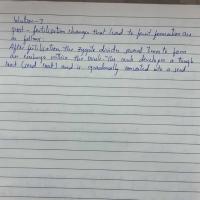 post - fertilization changes that lead to fruit formation are
as follows:
After fertilization the zygote divides several times to form
an embryo within the ovule. The ovule develops a tough
coat (seed coat) and is gradually converted into a seed.